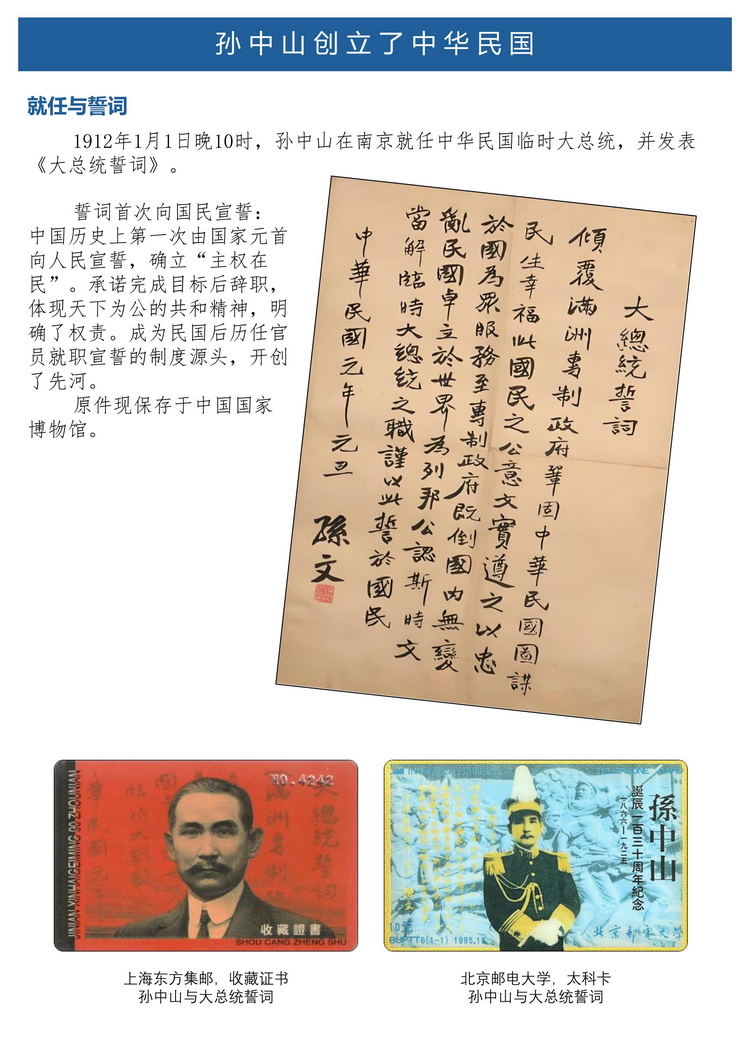 孙中山创立了中华民国
就任与誓词
1912年1月1日晚10时，孙中山在南京就任中华民国临时大总统，并发表
《大总统誓词》。
誓词首次向国民宣誓：
中国历史上第一次由国家元首
向人民宣誓，确立“主权在
民”。承诺完成目标后辞职，
体现天下为公的共和精神，明
确了权责。成为民国后历任官
员就职宣誓的制度源头，开创
了先河。
原件现保存于中国国家
博物馆。
大總統誓詞
傾覆滿洲專制政府鞏固中華民國圖謀
民生幸福此國民之公意文實遵之以忠
於國為眾服務至專制政府既倒國內無變
亂民國卓立於世界為列邦公認斯時文
當解臨時大總統之職謹以此誓於國民
中華民國元年元旦
孫文
JINIAN XINHAIGEIMING 90 ZHOUNIAN
NO.4242
收藏證書
SHOU CANG ZHENG SHU
孫中山
誕辰一百三十周年紀念
一八六六—一九二五
10元
BUPTT6(1-1) 1995.12
北京郵電大學
上海东方集邮，收藏证书
孙中山与大总统誓词
北京邮电大学，太科卡
孙中山与大总统誓词